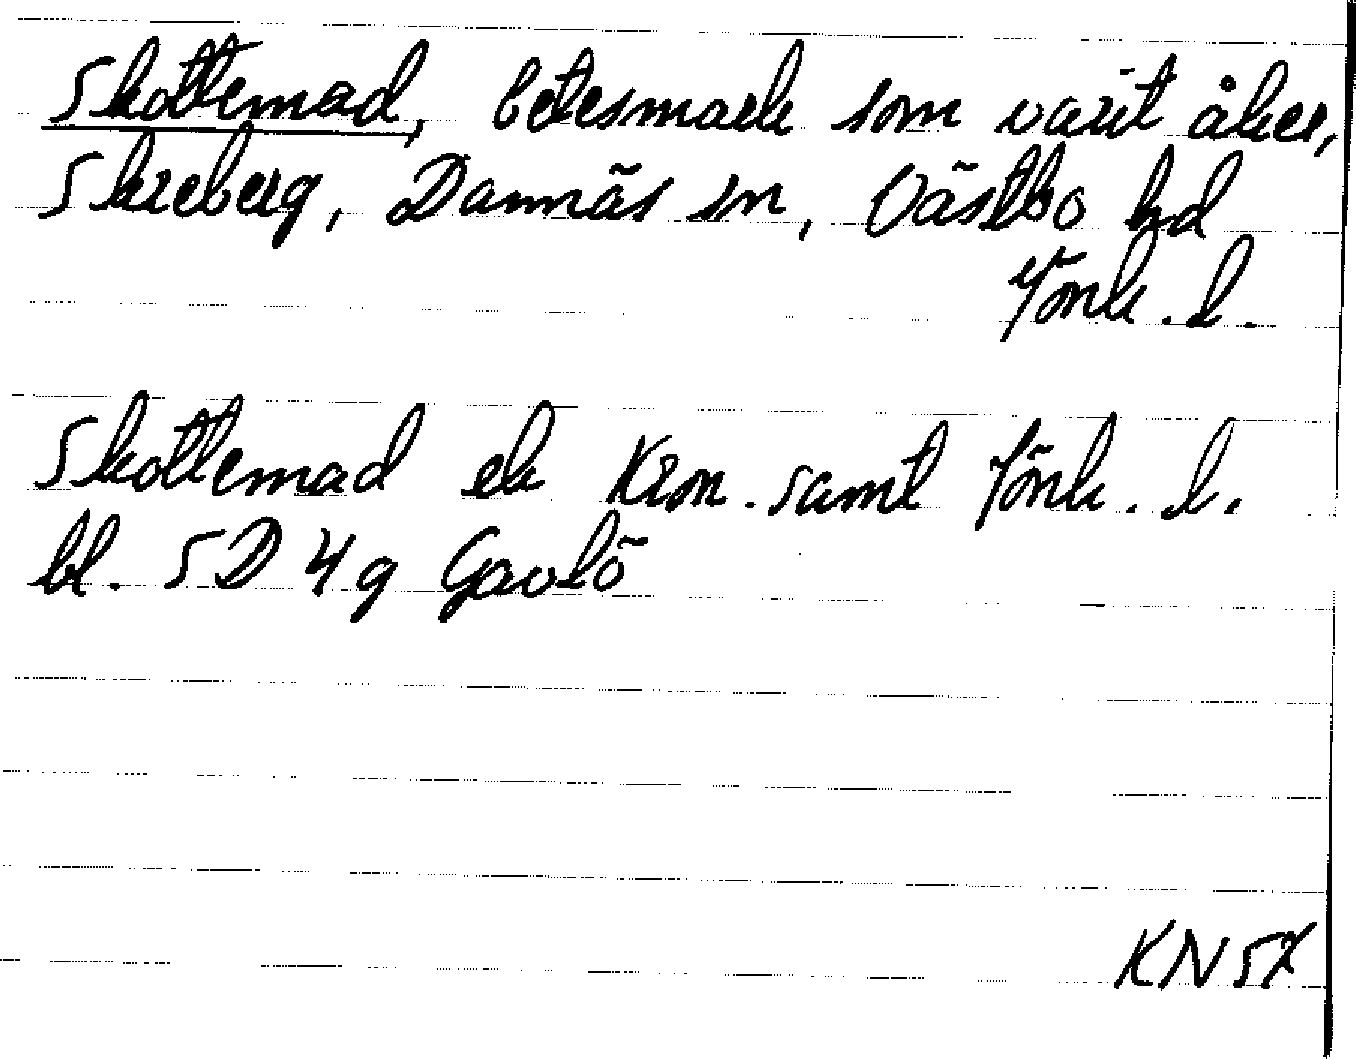 Skottemad, betesmark som varit åker,
Skreberg, Dannäs sn, Västbo hd
Jönk. l.
Skottemad ek Kron. samt Jönk. l.
bl. 5D 4g Gavlö
KN 57